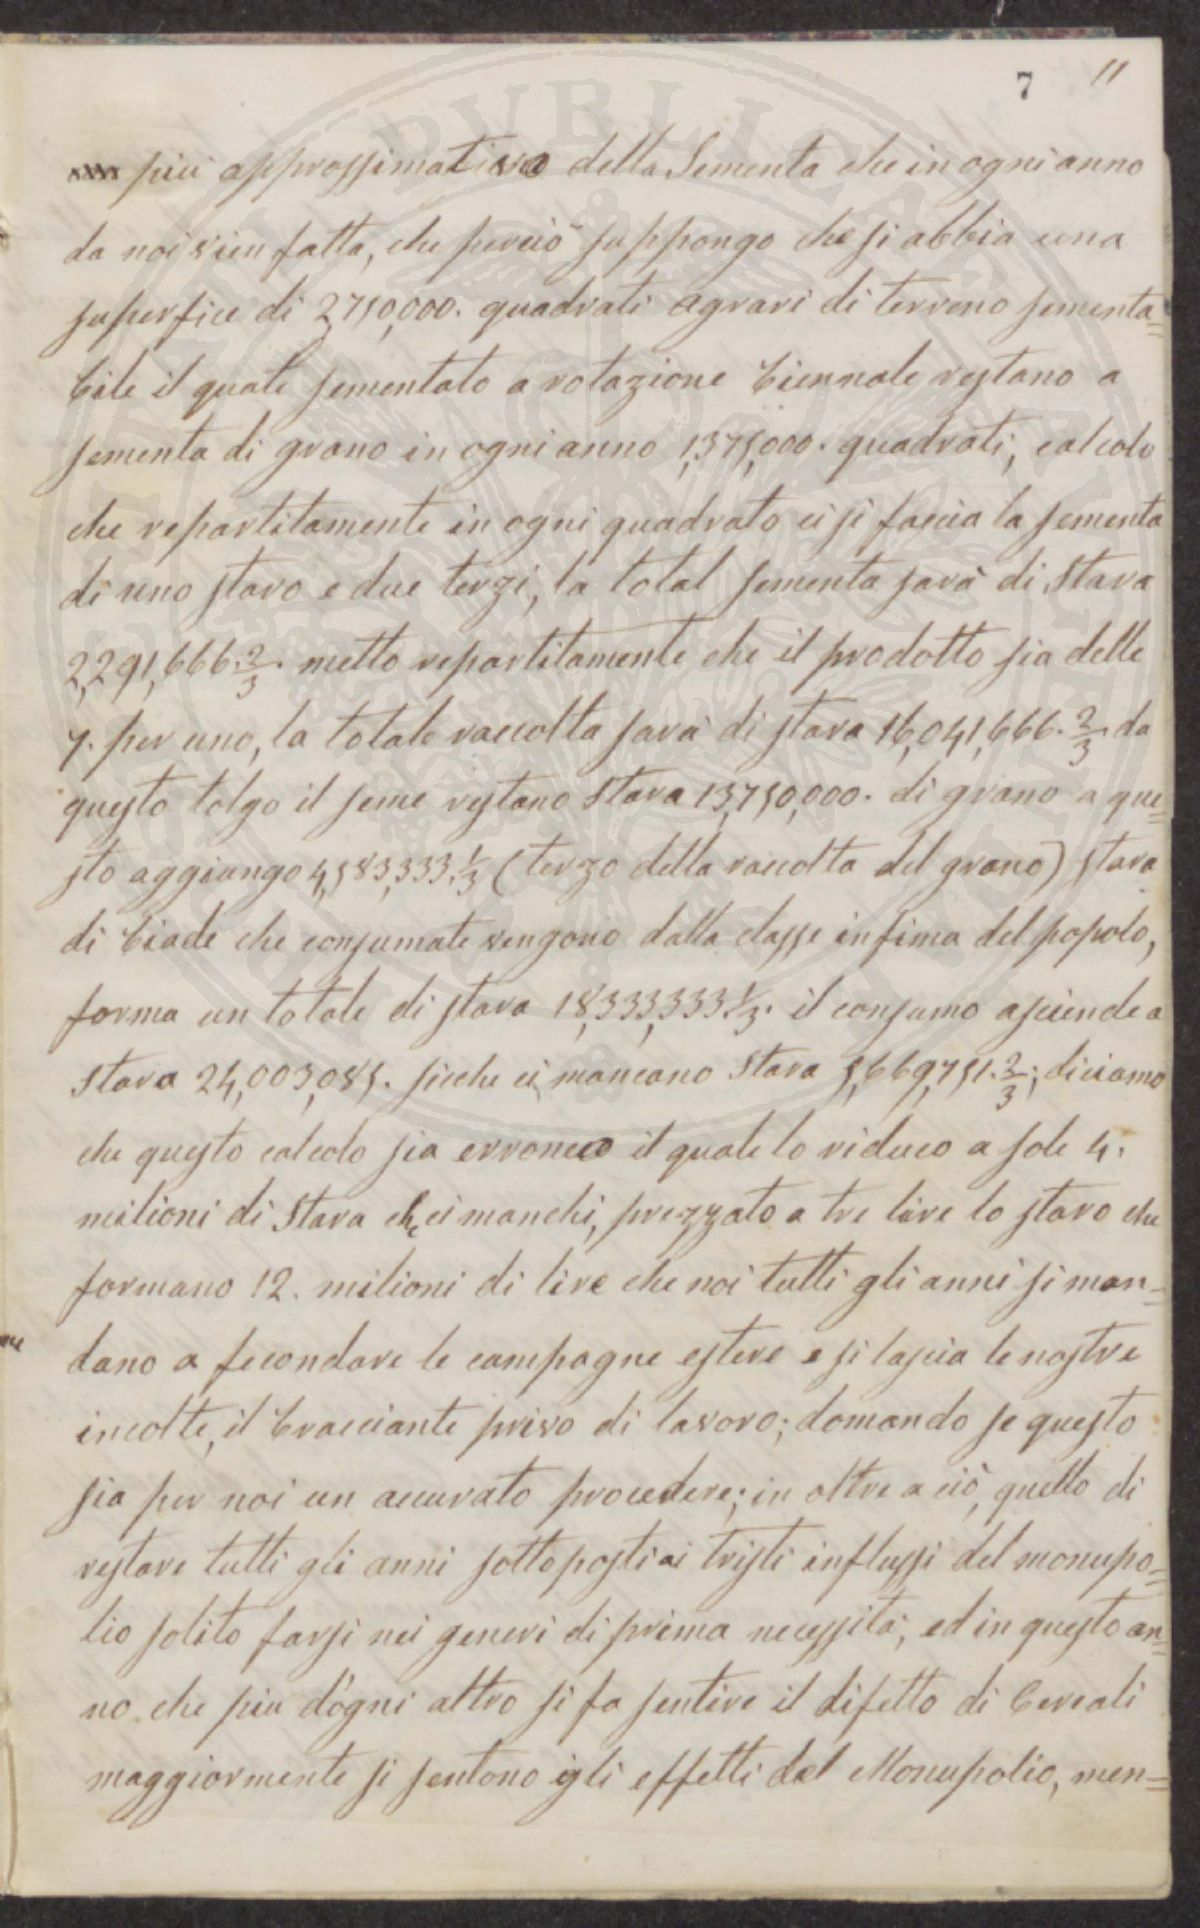 7 11
più approssimativa della Sementa che in ogni anno
da noi vien fatta, che perciò suppongo che si abbia una
superfice di 2,750,000. quadrati agrari di terreno sementa=
bile il quale sementato a rotazione biennale restano a
sementa di grano in ogni anno 1,375,000. quadrati, calcolo
che repartitamente in ogni quadrato ci si faccia la sementa
di uno staro e due terzi, la total sementa sarà di Stara
2,291,666.2/3. metto repartitamente che il prodotto sia delle
7. per uno, la totale raccolta sarà di stara 16,041,666.2/3. da
questo tolgo il seme restano Stara 13,750,000. di grano a que=
sto aggiungo 4,583,333.1/3 (terzo della raccolta del grano) stara
di biade che consumate vengono dalla classe infima del popolo,
forma un totale di stara 18,333,333 1/3. il consumo ascende a
Stara 24,003,085. sicche ci mancano Stara 5,669,751.2/3; diciamo
che questo calcolo sia erroneo il quale lo riduco a sole 4.
milioni di Stara che ci manchi, prezzato a tre lire lo staro che
formano 12. milioni di lire che noi tutti gli anni si man=
dano a fecondare le campagne estere e si lascia le nostre
incolte, il bracciante privo di lavoro; domando se questo
sia per noi un accurato procedere; in oltre a ciò, quello di
restare tutti gli anni sottoposti ai tristi influssi del monupo=
lio solito farsi nei generi di prima necessità; ed in questo an=
no che più d'ogni altro si fa sentire il difetto di Cereali
maggiormente si sentono gli effetti del Monupolio, men=